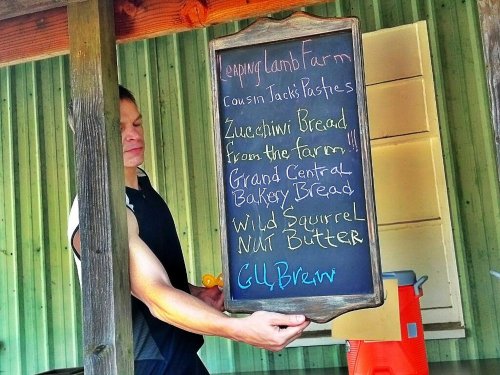 Leaping Lamb Farm
Cousin Jack's Pasties
Zucchiwi Bread
from the farm!!!
Grand Central
Bakery Bread
Wild Squirrel
NUT Butter
GU, Brew